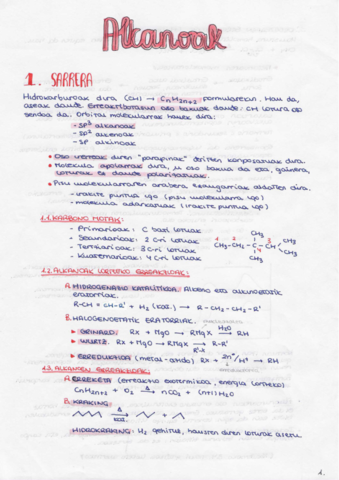 Alkanoak
1. SARRERA
Hidrokarburoak dira (CH) → CnH2n+2 formularekin. Hau da,
aseak daude. Erreaktibotasun oso baxuak daude: CH lotura oso
sendoa da. Orbital molekularrak hauek dira:
- sp³ alkanoak
- sp² alkenoak
- sp alkinoak
• Oso ... duen "parapina" deritzen konposatuak dira.
• Molekula apolarrak dira, μ oso baxua da eta, gainera,
loturak ez daude polarizatuak.
• Pisu molekularraren arabera ezaugarriak aldatzen dira.
- irakite puntua igo (pisu molekularra igo)
- molekula adarkatuak (irakite puntua igo)
1.1. KARBONO MOTAK:
- Primarioak: C bati lotuak
- Sekundarioak: 2 C-ri lotuak
- Tertziarioak: 3 C-ri lotuak
- Kuaternarioak: 4 C-ri lotuak
CH3
1 2 4 3 CH3
CH3-CH2-C-CH
CH3 CH3
1.2. ALKANOAK LORTZEKO ERREAKZIOAK:
A. HIDROGENAZIO KATALITIKOA. Alkeno eta alkinoetatik
eratorriak.
R-CH=CH-R' + H2 (kat.) → R-CH2-CH2-R'
B. HALOGENOETATIK ERATORRIAK.
▸ GRINARD. RX + MgO → RMgX H2O → RH
▸ WURTZ. RX + MgO → RMgX R'-X → R-R'
▸ ERREDUKZIOA (metal-azido) RX + Zn⁺/H⁺ → RH
1.3. ALKANOEN ERREAKZIOAK:
A. ERREKETA (erreakzio exotermikoa, energia lortzeko)
CnH2n+2 + O2 Δ → nCO2 + (n+1)H2O
B. KRAKING:
Δ
kat.
+
HIDROKRAKING: H2 gehituz, hausten diren loturak asetu.
1.